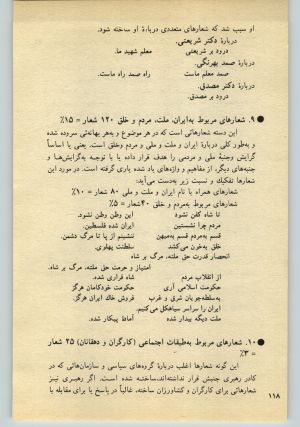 او سبب شد که شعارهای متعددی دربارهٔ او ساخته شود.
دربارهٔ دکتر شریعتی.
درود بر شریعتی معلم شهید ما.
دربارهٔ صمد بهرنگی.
صمد معلم ماست راه صمد راه ماست.
دربارهٔ دکتر مصدق.
درود بر مصدق.
۹. شعارهای مربوط به‌ایران، ملت، مردم و خلق ۱۲۰ شعار = ۱۵٪
این دسته شعارهائی است که در هر موضوع و به‌هر بهانه‌ئی سروده شده
و به‌طور کلی دربارهٔ ایران و ملت و ملی و مردم وخلق است. یعنی یا اساساً
گرایش وجنبهٔ ملی و مردمی را هدف قرار داده یا با توجه به‌گرایش‌ها و
جنبه‌های دیگر، از مفاهیم و واژه‌های یاد شده یاری گرفته است. در مورد این
شعارها تفکیك و نسبت زیر به‌دست می‌آید:
شعارهای همراه با نام ایران و ملت و ملی ۸۰ شعار = ۱۰٪
شعارهای مربوط به‌مردم و خلق ۴۰شعار = ۵٪
تا شاه کفن نشود این وطن وطن نشود.
مردم چرا نشستین ایران شده فلسطین.
قسم به‌مردم قسم به‌میهن ننشینم از پا تا مرگ دشمن.
خلق به‌خون می‌کشد سلطنت پهلوی.
انحصار قدرت حق ملته، مرگ بر شاه
امتیاز و حرمت حق ملته، مرگ بر شاه.
از انقلاب مردم شاه فراری شده.
حکومت اسلامی آری حکومت خودکامان هرگز
به‌سلطه‌جویان شرق و غرب فروش خاك ایران هرگز.
ایران را سراسر سیاهکل می‌کنیم.
ملت دیگه بیدار شده آمادهٔ پیکار شده.
۱۰. شعارهای مربوط به‌طبقات اجتماعی (کارگران و دهقانان) ۲۵ شعار
= ۳٪
این گونه شعارها اغلب دربارهٔ گروه‌های سیاسی و سازمان‌هائی که در
کادر رهبری جنبش قرار نداشته‌اند،ساخته شده است. اگر رهبری نیز
شعارهائی برای کارگران و کشاورزان ساخته، غالباً در پاسخ یا برای مقابله با
۱۱۸